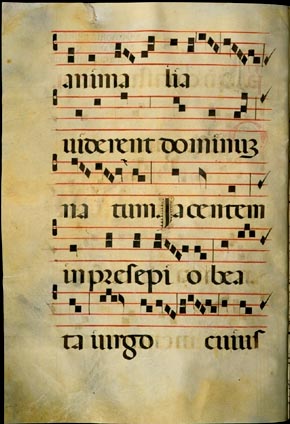 anima lia
uiderent dominuz
na tum. Jacentem
in presepi o bea
ta uirgo cuius